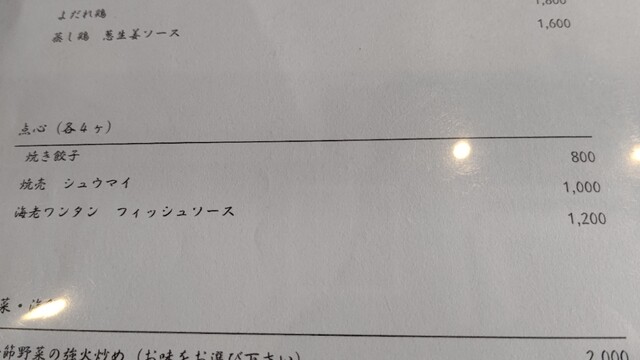 よだれ鶏 1,800
蒸し鶏 葱生姜ソース 1,600
点心（各4ヶ）
焼き餃子 800
焼売 シュウマイ 1,000
海老ワンタン フィッシュソース 1,200
菜・海
節野菜の強火炒め（お味をお選び下さい） 2,000